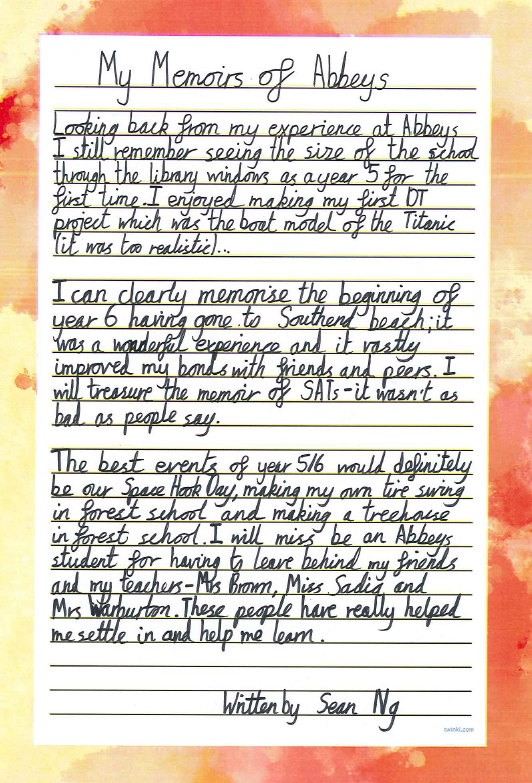 My Memoirs of Abbeys
Looking back from my experience at Abbeys
I still remember seeing the size of the school
through the library windows as a year 5 for the
first time. I enjoyed making my first DT
project which was the boat model of the Titanic
(it was too realistic)...
I can clearly memorise the beginning of
year 6 having gone to Southend beach; it
was a wonderful experience and it vastly
improved my bonds with friends and peers. I
will treasure the memoir of SATs - it wasn't as
bad as people say.
The best events of year 5/6 would definitely
be our Space Hook Day, making my own tire swing
in forest school and making a treehouse
in forest school. I will miss be an Abbeys
student for having to leave behind my friends
and my teachers - Mrs Brown, Miss Sadia and
Mrs Warburton. These people have really helped
me settle in and help me learn.
Written by Sean Ng
twinkl.com